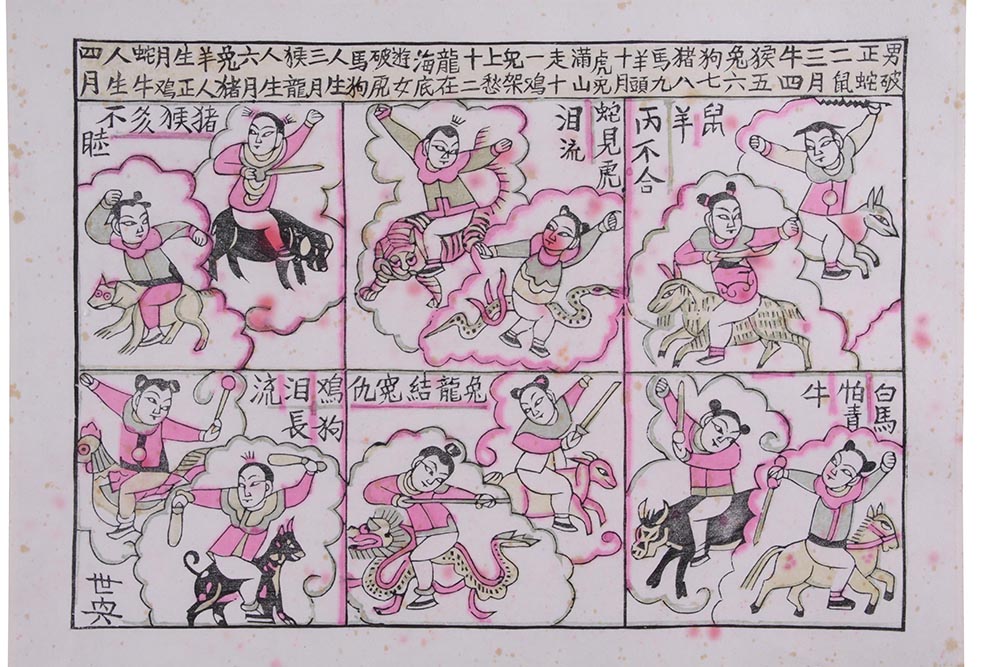 男破正蛇二鼠三月牛四猴五兔六狗七猪八馬九羊頭十月虎兕滿山走十一鸡兕架上愁十二龍在海底遊女破虎馬狗人生三月猴龍人生六月兔猪羊人生正月鸡蛇牛人生四月
鼠羊
丙不合
蛇見虎
泪流
猪猴亥不睦
白馬
怕青
牛
兔龍結寃仇
鸡狗
泪長
流
世央